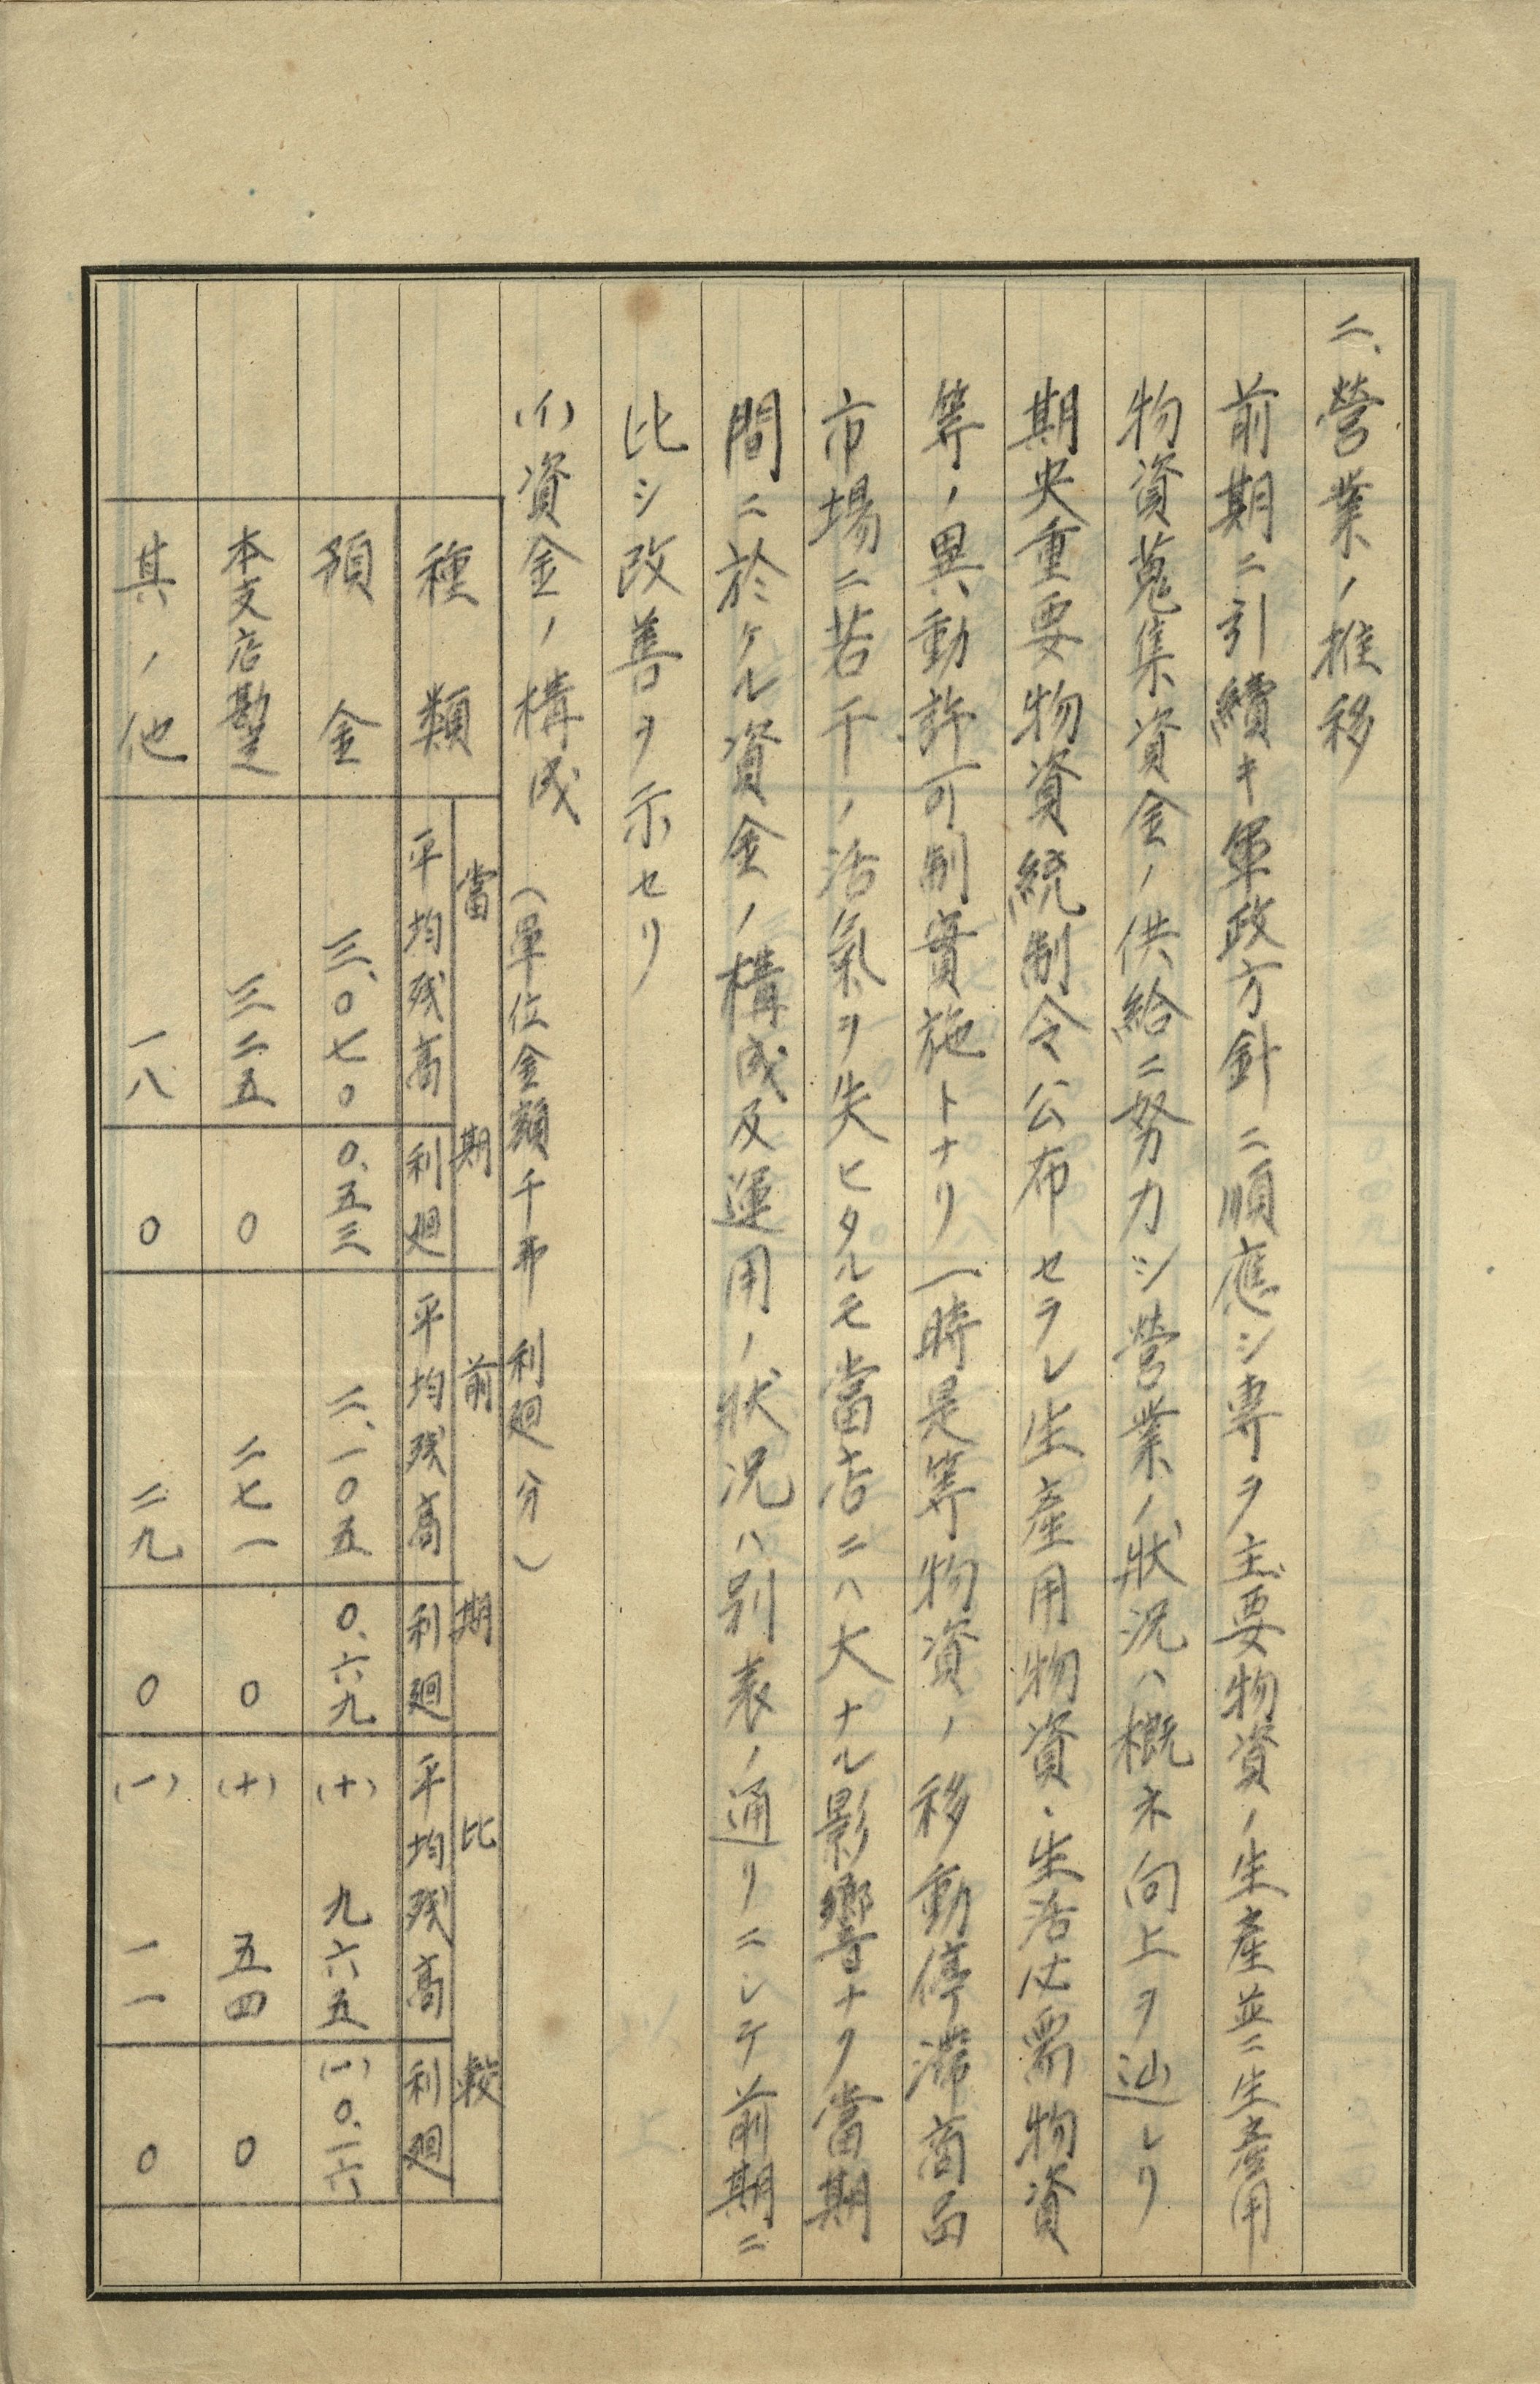 二、營業ノ推移
前期ニ引續キ軍政方針ニ順應シ專ヲ主要物資ノ生産並ニ生産用
物資蒐集資金ノ供給ニ努力シ營業ノ狀況ハ概ネ向上ヲ辿レリ
期央重要物資統制令公布セラレ生産用物資、生活必需物資
等ノ異動許可制實施トナリ一時是等物資ノ移動停滯商品
市場ニ若干ノ活氣ヲ失ヒタルモ當店ニハ大ナル影響ナク當期
間ニ於ケル資金ノ構成及運用ノ狀況ハ別表ノ通リニシテ前期ニ
比シ改善ヲ示セリ
(イ)資金ノ構成 (單位金額千 利廻分)
當期 前期 比較
種類 平均残高 利廻 平均残高 利廻 平均残高 利廻
預金 三、〇七〇 〇、五三 二、一〇五 〇、六九 (十) 九六五 (一)〇、一六
本支店勘定 三二五 〇 二七一 〇 (十) 五四 〇
其ノ他 一八 〇 二九 〇 (一) 一一 〇